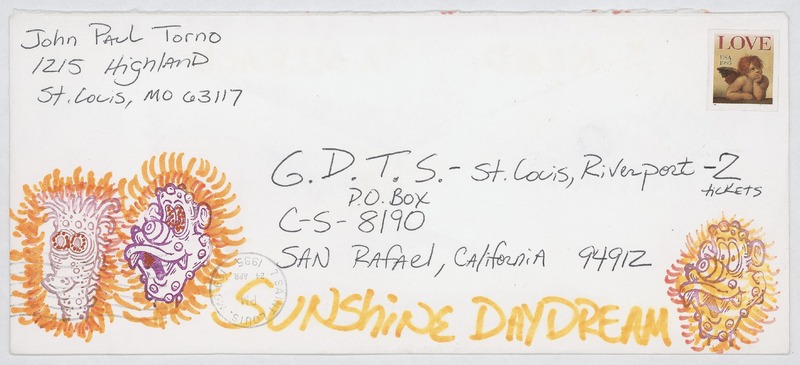 John Paul Torno
1215 Highland
St. Louis, MO 63117
LOVE
USA
1995
G.D.T.S. - St. Louis, Riverport - 2
tickets
P.O. Box
C-S-8190
San Rafael, California 94912
SUNShiNE DAYDREAM
SAINT LOUIS,
PM
24 APR
1995